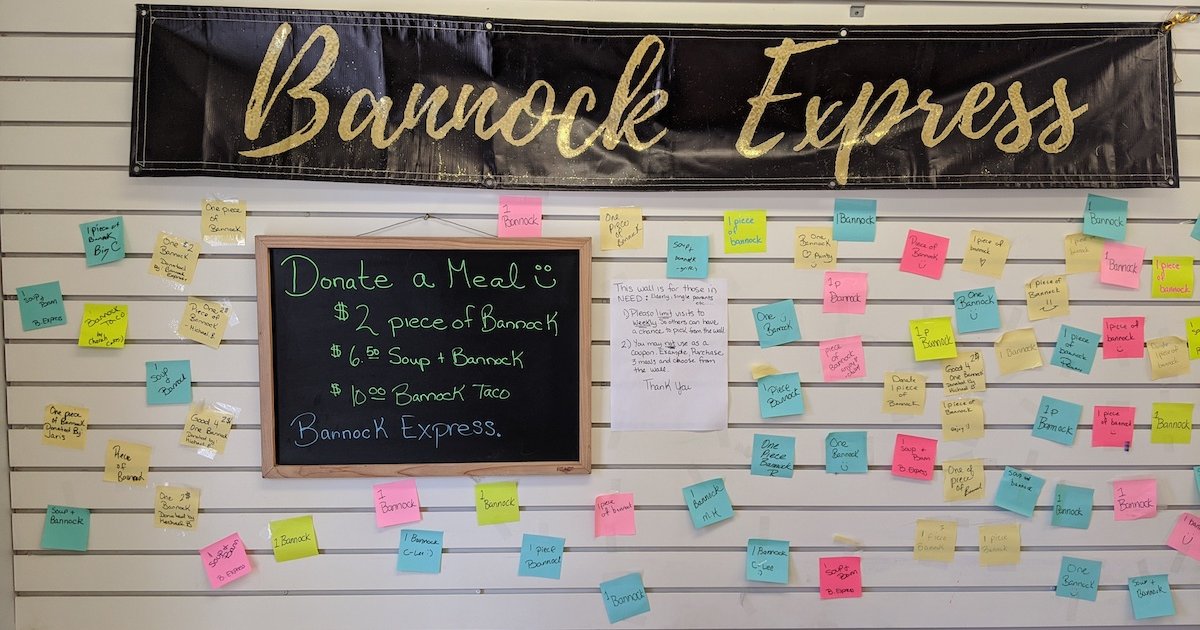 Bannock Express
Donate a Meal
$2 piece of Bannock
$6.50 Soup + Bannock
$10.00 Bannock Taco
Bannock Express.
This wall is for those in
NEED: Elderly, single parents
etc.
1) Please limit visits to
weekly so others can have
a chance to pick from the wall.
2) You may not use as a
coupon. Example, Purchase
3 meals and choose from
the wall.
Thank You
1 piece of
Bannock
Big C
One piece
of
Bannock
One $2
Bannock
Donated
By: Bannock
Express.
Soup +
Bannock
B. Express
Bannock
Taco
One 2$
Piece of
Bannock
- Michael B
1
Soup +
Bannock
One piece
of Bannock
Donated By
Jaris
Good 4 2$
One Bannock
Donated by
Michael B
Piece
of
Bannock
One 2$
Bannock
Donated by
Michael B
Soup +
Bannock
1
Soup +
Bann
B. Express
1 Bannock
1
Bannock
1
Bannock
1 Bannock
C-Lee :)
1 piece
Bannock
1
Bannock
One
Piece
of Bannock
Soup +
Bannock
1 piece
of
bannock
One
Bannock
1 Bannock
1p
Bannock
One
Bannock
piece of
Bannock
1 Piece
Bannock
One
Piece
Bannock
1
Bannock
1 piece
of bannock
1 Bannock
C-Lee
Soup +
Bann
B. Express
One
Bannock
Piece of
Bannock
1 piece of
bannock
1 p
Bannock
One
Bannock
Donate
1 piece of
Bannock
Good 4
One Bannock
Donated By
Michael B
1 piece of
Bannock
Enjoy :)
1
Soup +
Bann
B. Express
One of
piece of
Bannock
Soup or
bannock
1 piece
Bannock
1
Bannock
1
Bannock
1 piece
of
bannock
1 piece of
Bannock
1 Bannock
1 piece
of
bannock
1 piece of
bannock
1p
Bannock
1 piece
of bannock
1
Bannock
1
Bannock
1
Bannock
One
Bannock
Soup +
Bannock